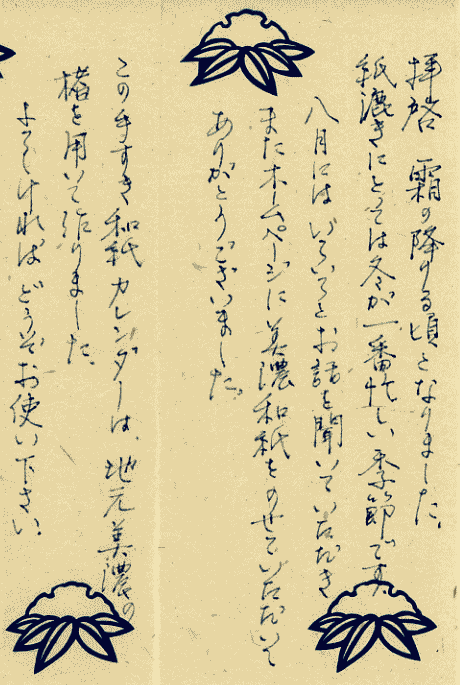 拝啓 霜の降りる頃となりました。
紙漉きにとっては冬が一番忙しい季節です
八月には いろいろとお話を聞いていただき
またホームページに美濃和紙をのせていただいて
ありがとうございました。
この手すき和紙カレンダーは、地元美濃の
楮を用いて作りました。
よろしければどうぞお使い下さい。